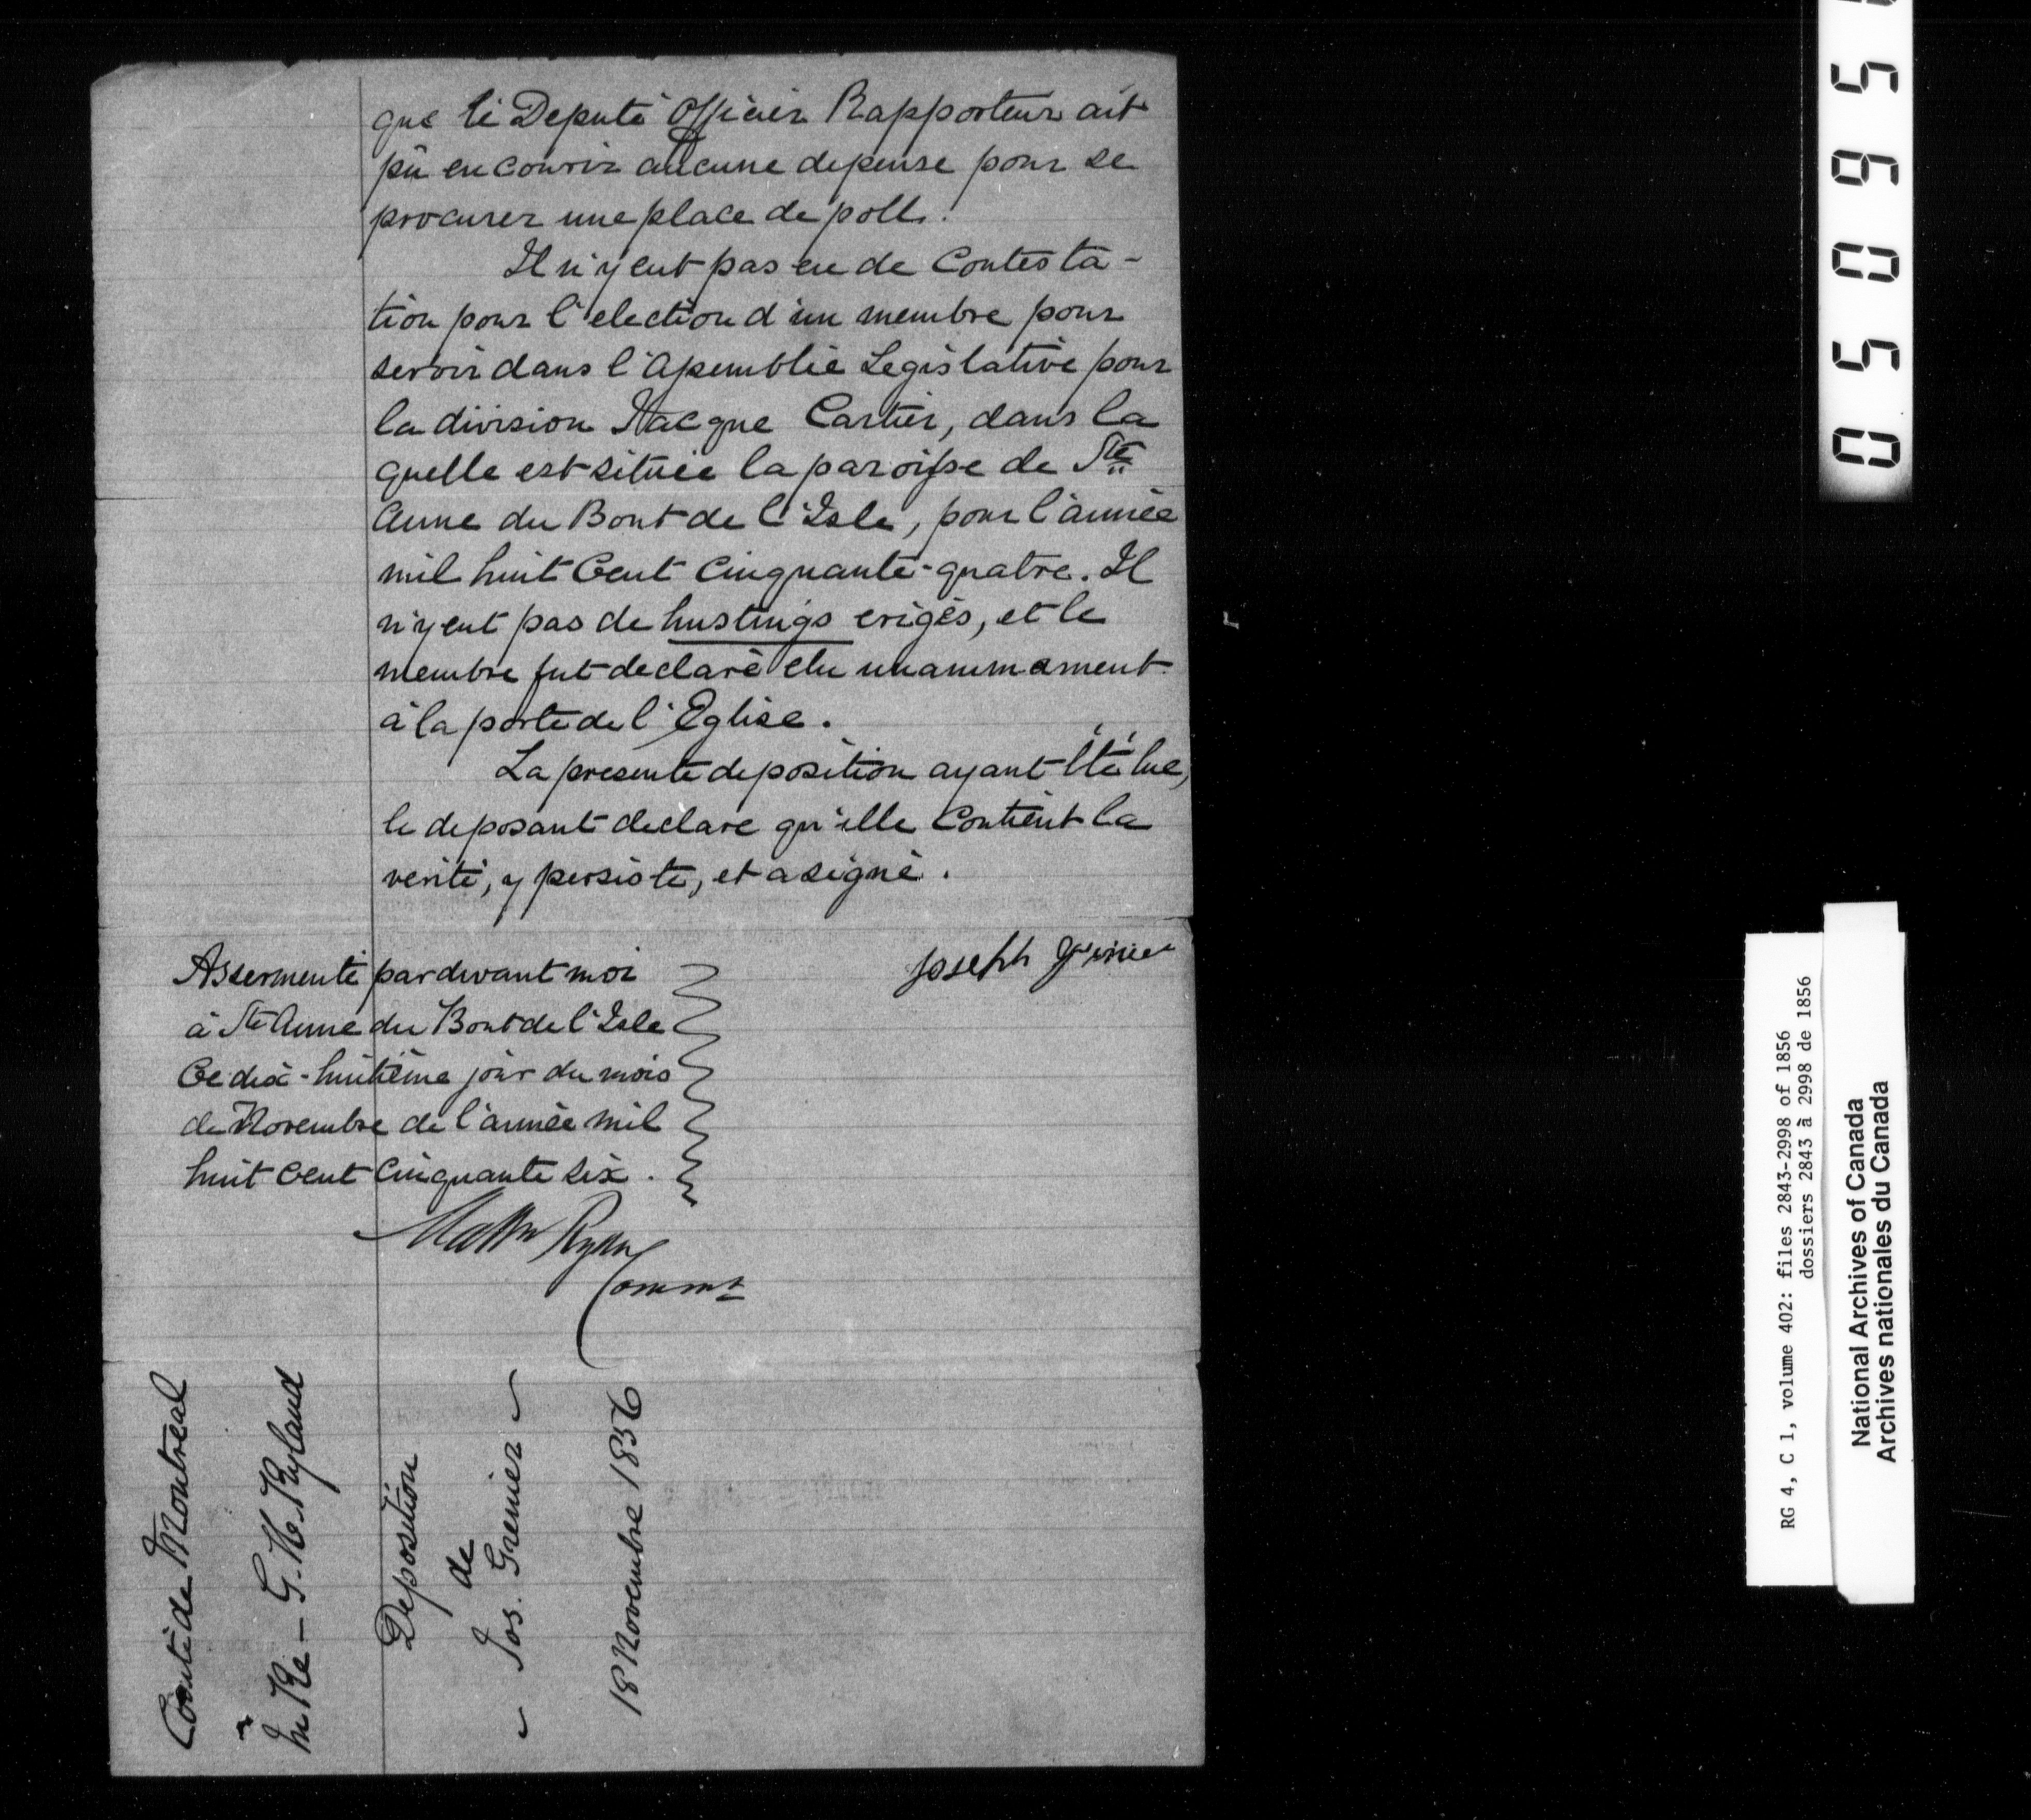 que le Deputé Officier Rapporteur ait
pû encourir aucune depense pour se
procurer une place de poll.
Il n'y eut pas eu de Contesta-
tion pour l'election d'un membre pour
servir dans l'Assemblée Legislative pour
la division Jacque Cartier, dans la
quelle est située la paroisse de Ste
Anne du Bout de l'Isle, pour l'année
mil huit Cent Cinquante-quatre. Il
n'y eut pas de hustings erigés, et le
membre fut declaré elu unanimament
à la porte de l'Eglise.
La presente deposition ayant été lue,
le deposant declare qu'elle Contient la
verité, y persiste, et a signé.
Joseph
Assermenté pardevant moi
à Ste Anne du Bout de l'Isle
Ce dix-huitième jour du mois
de Novembre de l'année mil
huit Cent Cinquante six.
Commr
Comté de Montreal
In Re - G. H. Ryland
Deposition
de
Jos. Grenier
18 Novembre 1856
050959
RG 4, C 1, volume 402: files 2843-2998 of 1856
dossiers 2843 à 2998 de 1856
National Archives of Canada
Archives nationales du Canada